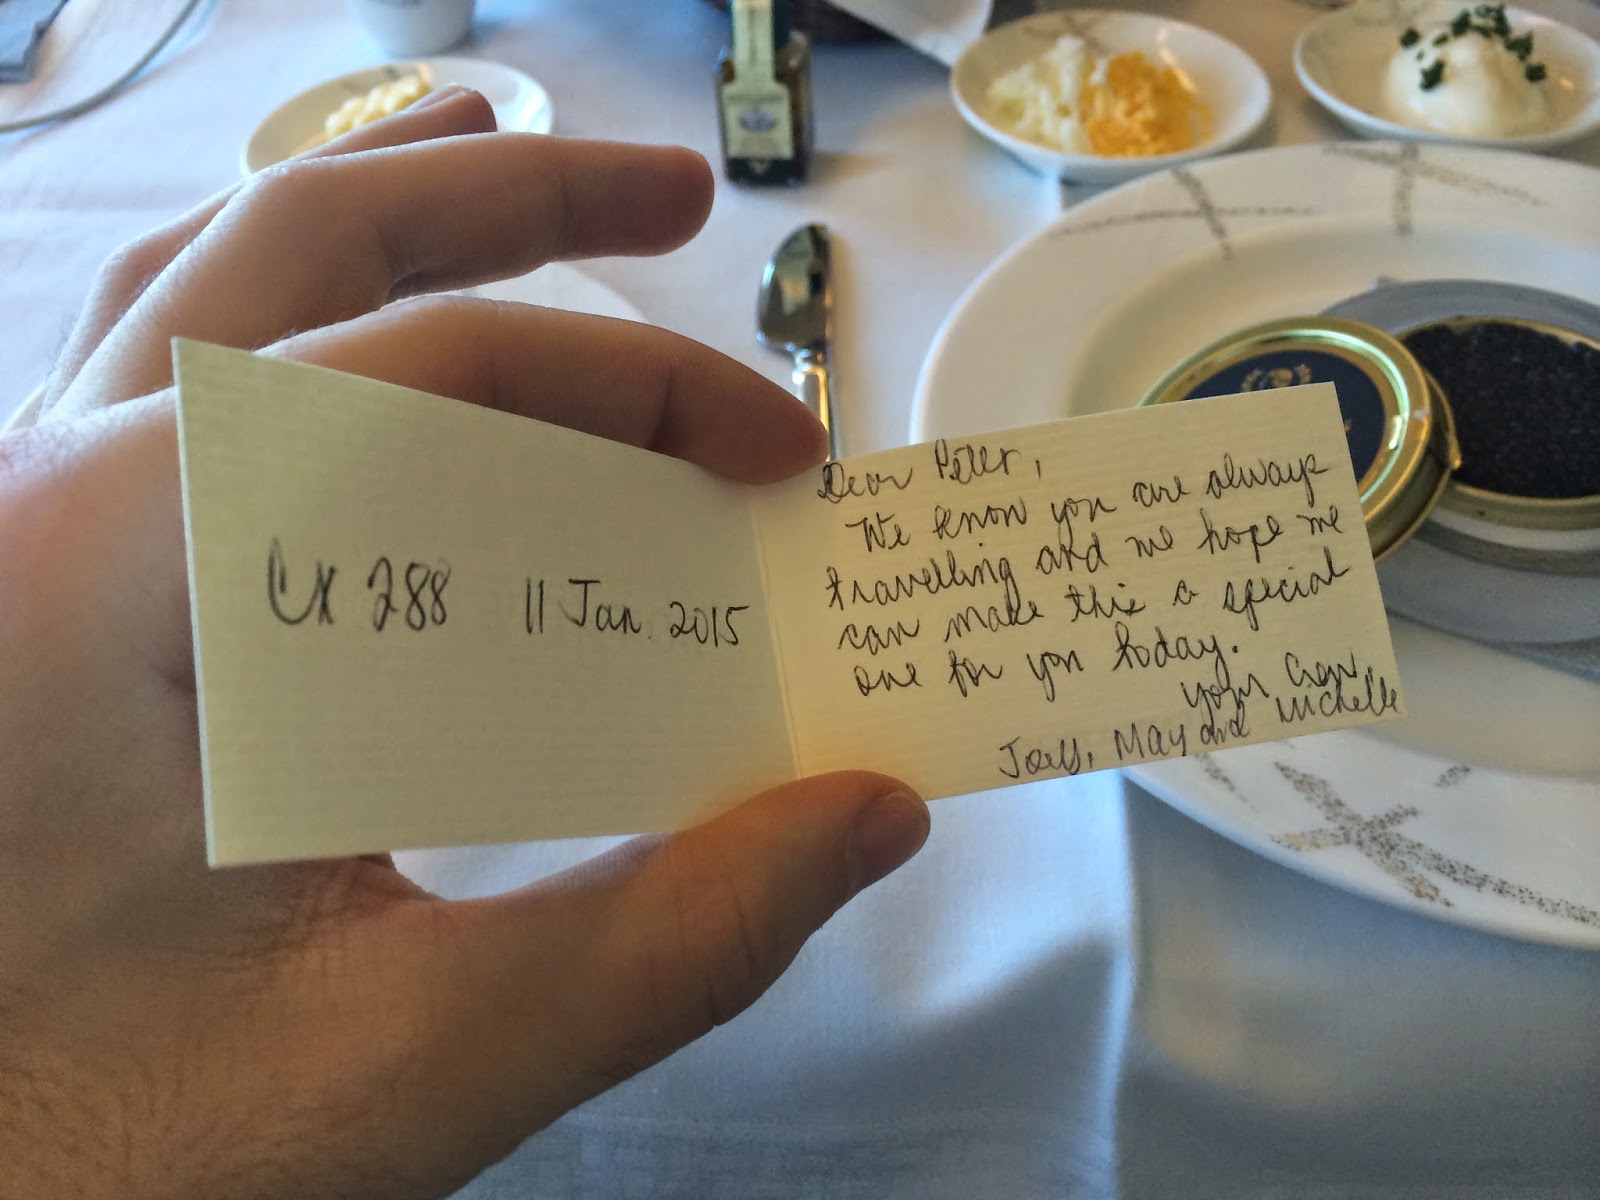 CX 288 11 Jan. 2015
Dear Peter,
We know you are always
travelling and we hope we
can make this a special
one for you today.
Your Crew,
May and Michelle